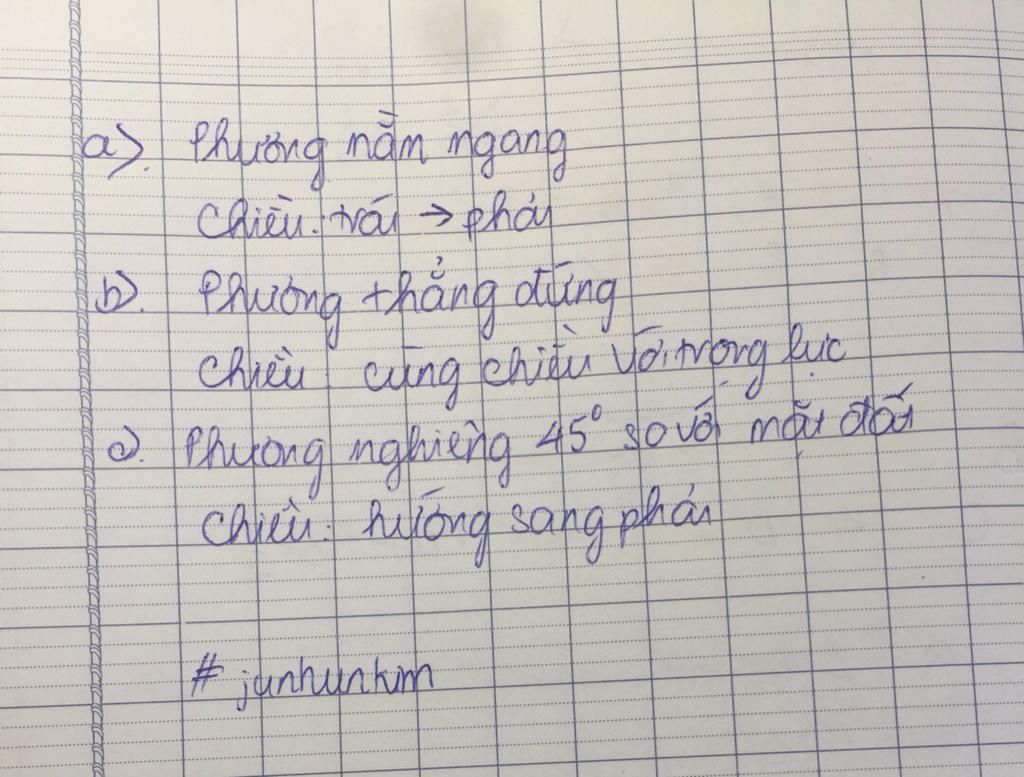 a). Phương nằm ngang
Chiều: trái → phải
b). Phương thẳng đứng
Chiều: cùng chiều với trọng lực
c). Phương nghiêng 45° so với mặt đất
Chiều: hướng sang phải
# junhunkim